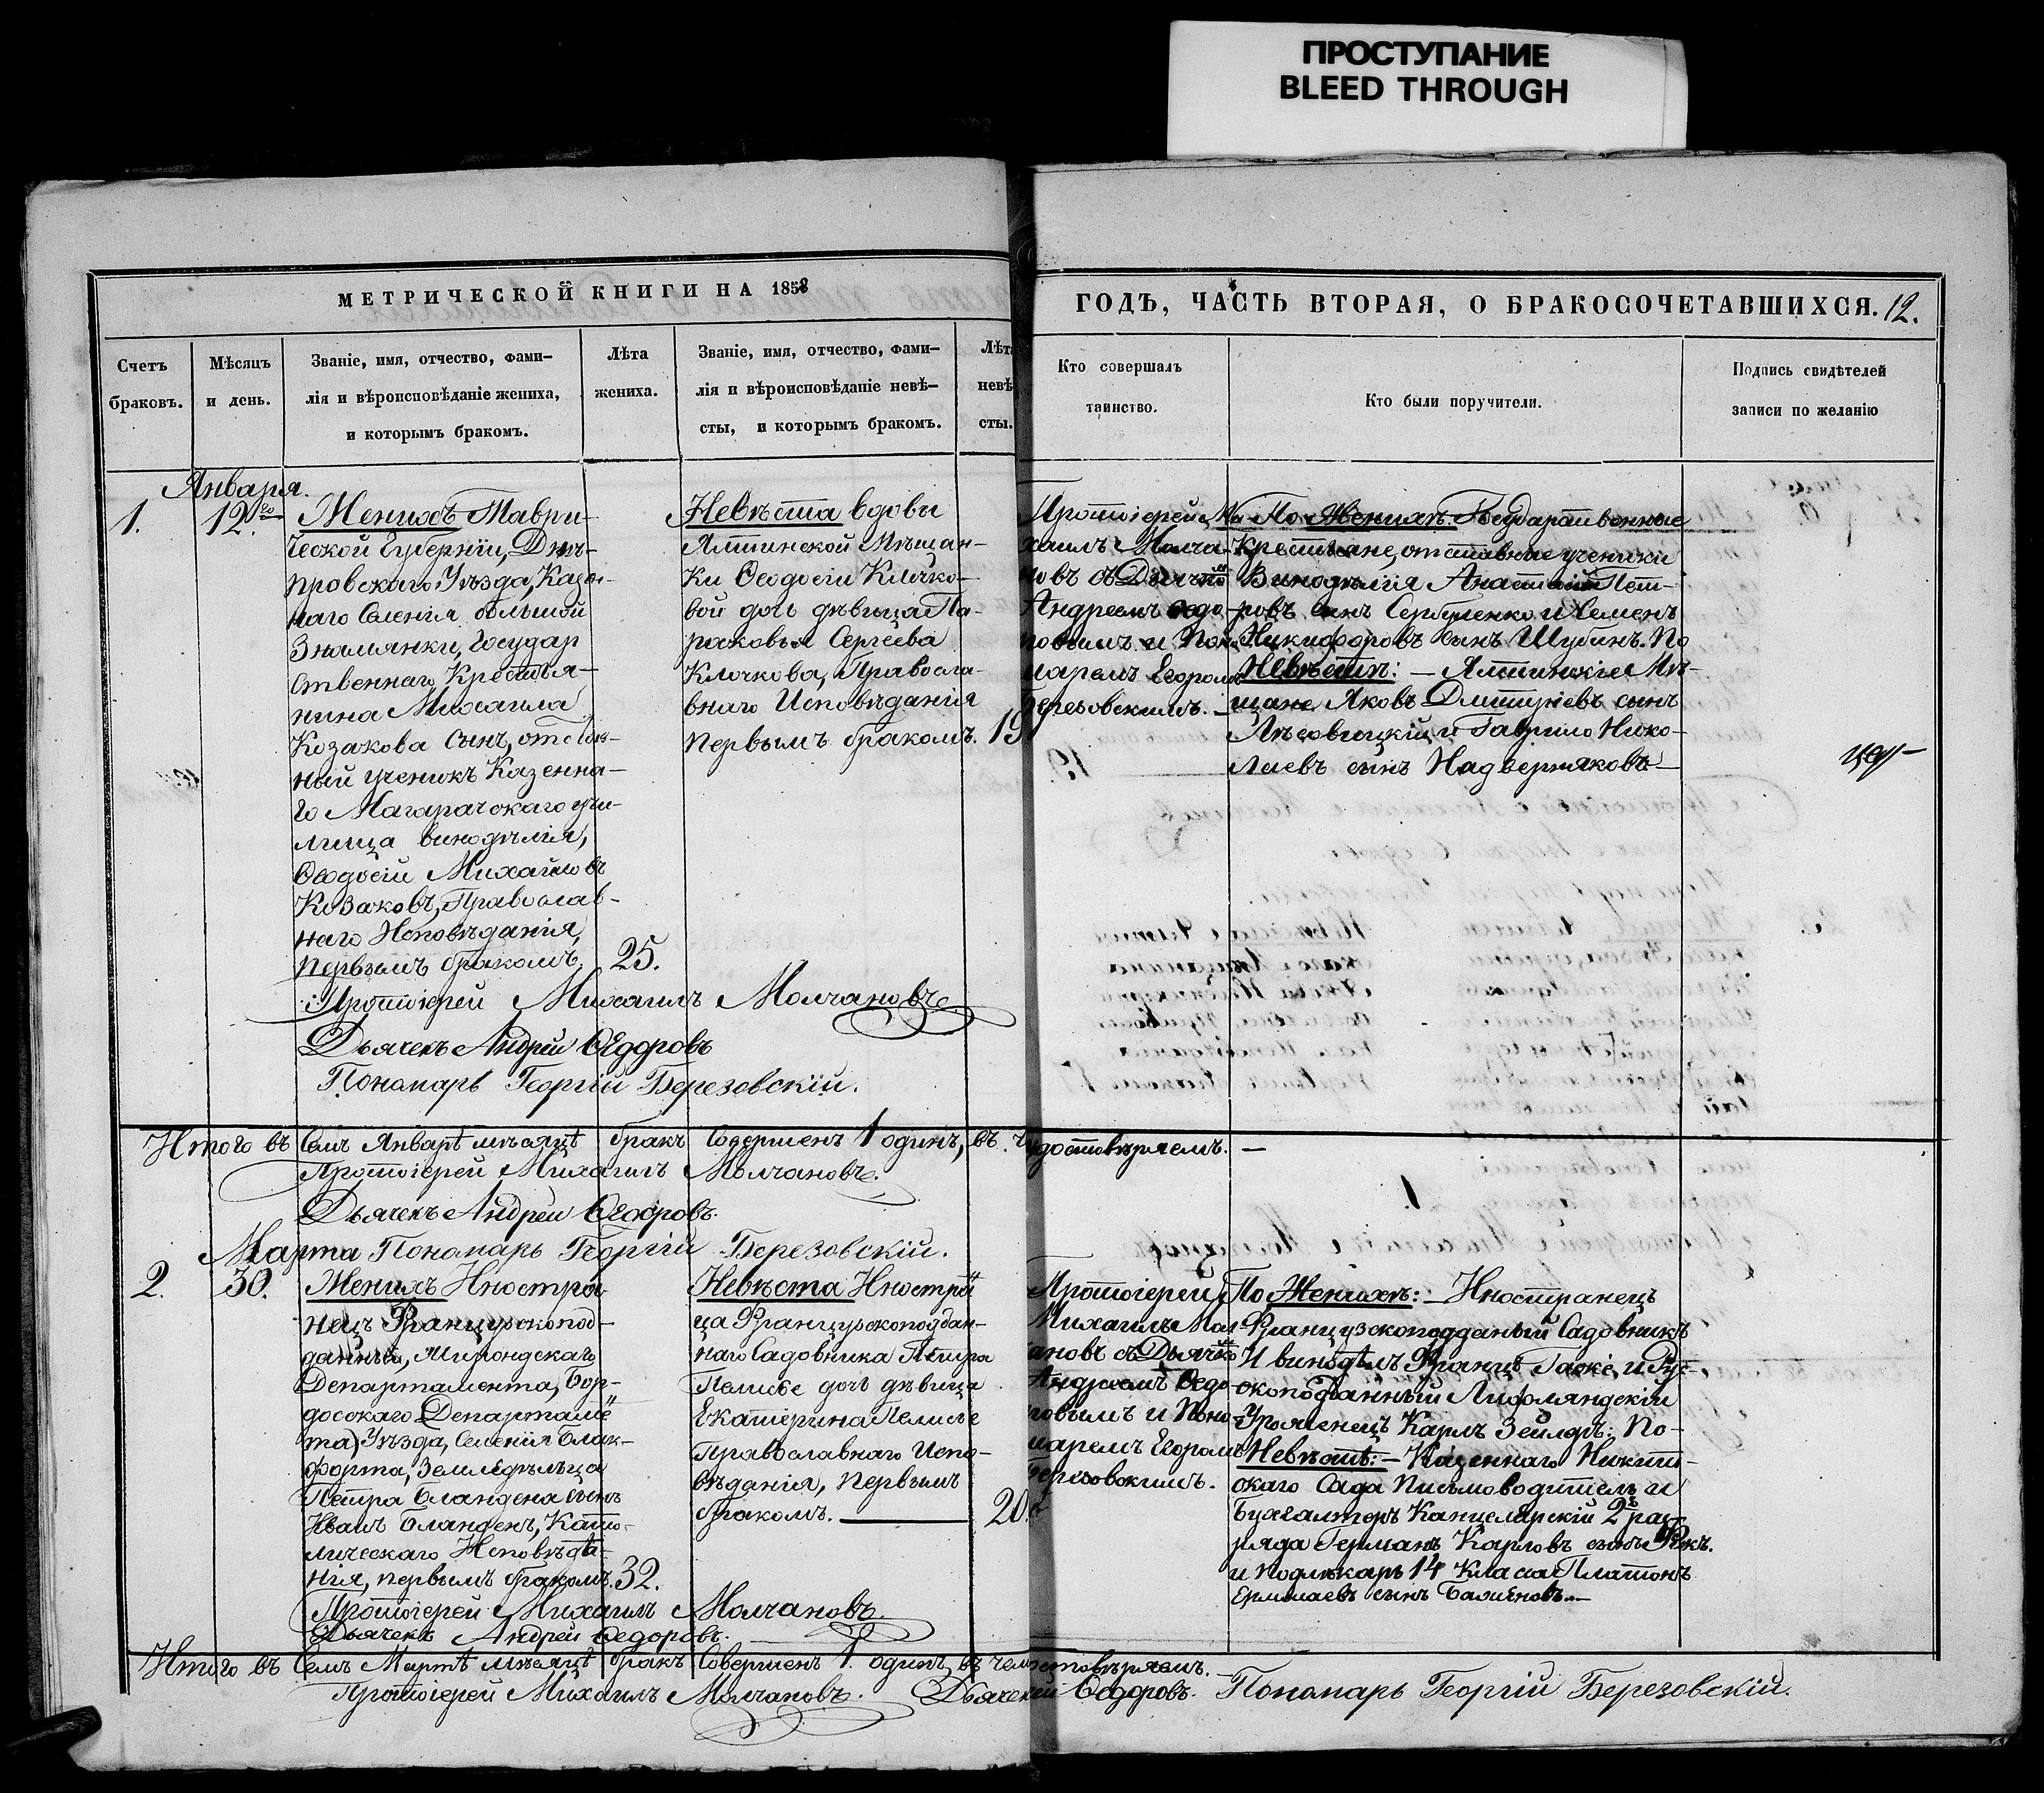 ПРОСТУПАНИЕ
BLEED THROUGH
МЕТРИЧЕСКОЙ КНИГИ НА 1858
ГОДЪ, ЧАСТЬ ВТОРАЯ, О БРАКОСОЧЕТАВШИХСЯ. 12.
Счетъ
браковъ.
Мѣсяцъ
и день.
Званіе, имя, отчество, фами-
лія и вѣроисповѣданіе жениха,
и которымъ бракомъ.
Лѣта
жениха.
Званіе, имя, отчество, фами-
лія и вѣроисповѣданіе невѣ-
сты, и которымъ бракомъ.
Лѣта
невѣ
сты.
Кто совершалъ
таинство.
Кто были поручители.
Подпись свидѣтелей
записи по желанію
Января.
1.
12.го
Женихъ Таври-
ческой Губерніи, Днѣ-
провскаго Уѣзда, Казен-
наго Селенія большой
Знамянки, Государ
ственнаго Крестья-
нина Михаила
Козакова Сынъ, отстав-
ный ученикъ Казенна-
го Магарачскаго учи-
лища винодѣлія,
Ѳеодосій Михайловъ
Козаковъ, Православ-
наго Исповѣданія,
первымъ бракомъ.
25.
Невѣста вдовы
Ялтинской Мѣщан-
ки Ѳеодосіи Клочко-
вой дочь дѣвица Па-
расковья Сергеева
Клочкова, Правосла-
внаго Исповѣданія
первымъ бракомъ.
19
Протоіерей Ми
хаилъ Молча-
новъ съ Дьячко
Андреемъ Ѳедо-
ровымъ и Поно
маремъ Егоромъ
Березовскимъ.
По Женихѣ: Государственные
Крестьяне, отставные ученики
Винодѣлія Анастасій Пет-
ровъ сынъ Сербуленко и Семенъ
Никифоровъ сынъ Шубинъ. По
Невѣстѣ: — Ялтинскіе Мѣ-
щане Яковъ Дмитріевъ сынъ
Лѣсовицкій и Гаврило Нико-
лаевъ сынъ Надвержаковъ—
Протоіерей Михаилъ Молчановъ
Дьячекъ Андрей Ѳедоровъ
Пономарь Георгій Березовскій.
Итого въ Семъ Январѣ мѣсяцѣ бракъ Совершенъ 1 одинъ, въ ч удостовѣряемъ. —
Протоіерей Михаилъ Молчановъ.
Дьячекъ Андрей Ѳедоровъ.
Пономарь Георгій Березовскій.
Марта
2.
30.
Женихъ Иностра
нецъ Французскопод-
данный, Жирондскаго
Департамента, Бор-
досскаго Департамѣ
та) Уѣзда, Селенія Блак-
форта, Земледѣльца
Петра Бланденa сынъ
Иванъ Бланденъ, Като-
лическаго Исповѣда-
нія, первымъ бракомъ.
32.
Невѣста Иностран
ца Французскоподдан-
наго Садовника Петра
Пелисье дочь дѣвица
Екатерина Пелисье
Православнаго Испо-
вѣданія, первымъ
бракомъ. —
20.
Протоіерей
Михаилъ Мол
ановъ съ Дьячко
Андреемъ Ѳедо-
ровымъ и Поно-
маремъ Егоромъ
Березовскимъ.
По Женихѣ: — Иностранецъ
Французскоподданый Садовникъ
И винодѣлъ Францъ Гаске, и Рус-
скоподданный Лифляндскій
Уроженецъ Карлъ Зейлеръ; По-
Невѣстѣ: — Казеннаго Никит-
скаго Сада Письмоводитель и
Бухгалтеръ Канцелярскій 2 раз-
ряда Германъ Карловъ сынъ
и подлѣкарь 14 Класса Платонъ
Ермолаевъ сынъ Баженовъ.—
Протоіерей Михаилъ Молчановъ.
Дьячекъ Андрей Ѳедоровъ.
Итого въ Семъ Мартѣ мѣсяцѣ бракъ Совершенъ 1. одинъ, въ чем стовѣряемъ.
Протоіерей Михаилъ Молчановъ. Дьячекъ Ѳедоровъ. Пономарь Георгій Березовскій.